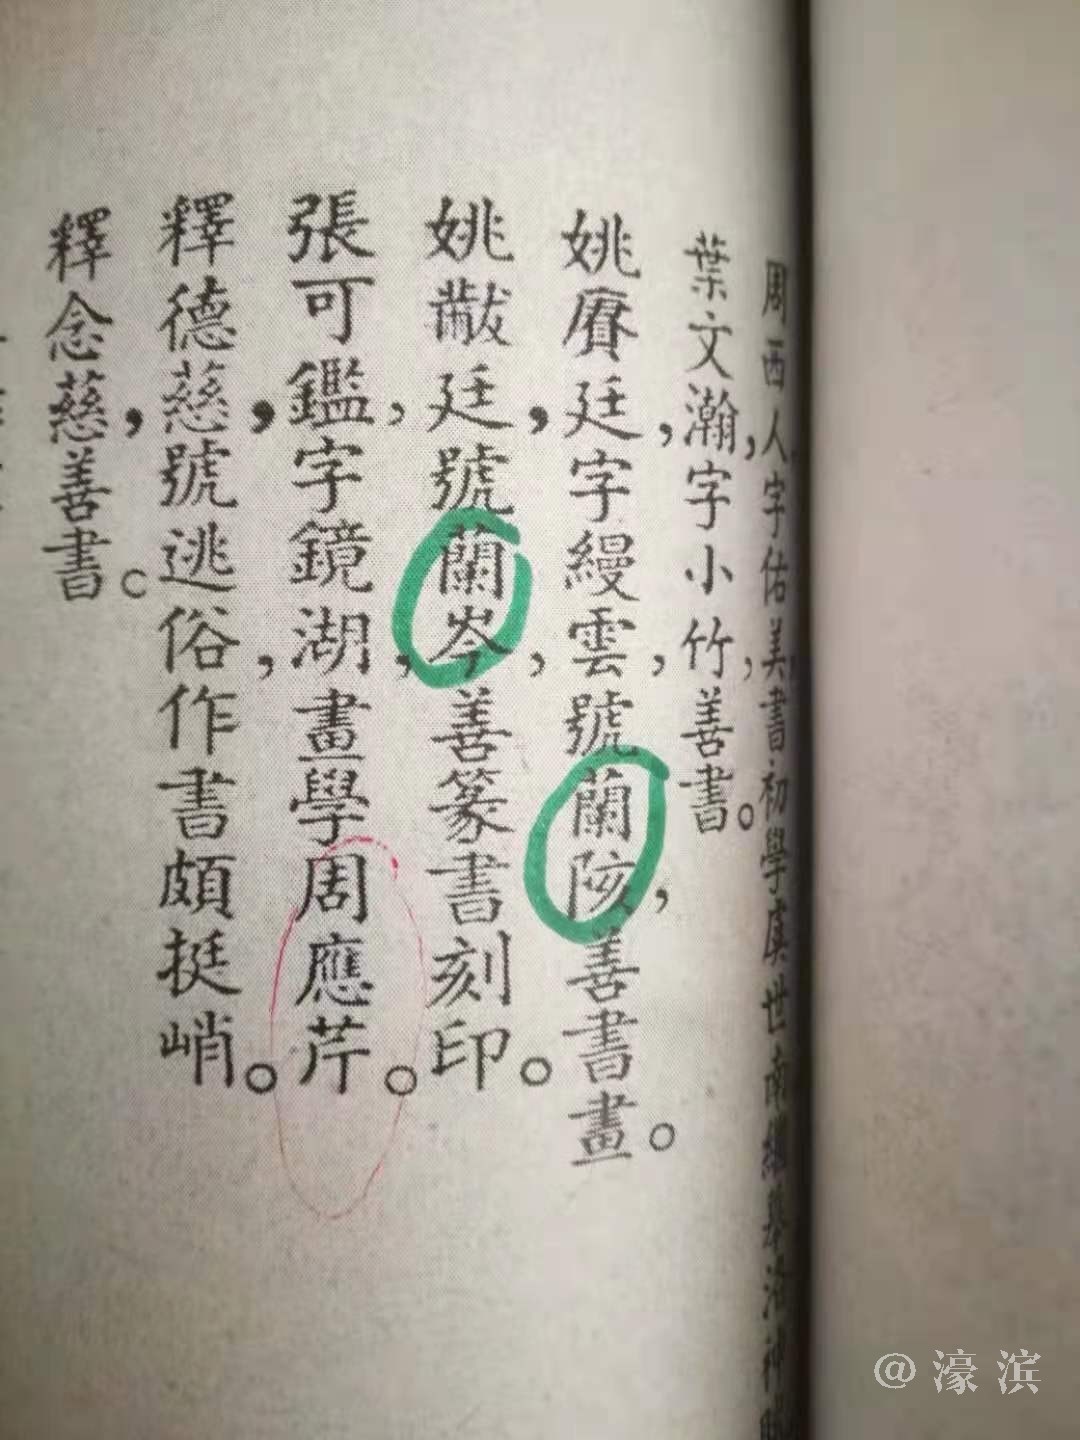 周西人，字佑美，書初學虞世南，繼摹洛神
葉文瀚，字小竹，善書。
姚賡廷，字縵雲，號蘭陔，善書畫。
姚黻廷，號蘭岑，善篆書刻印。
張可鑑，字鏡湖，畫學周應芹。
釋德慈，號逃俗，作書頗挺峭。
釋念慈，善書。
@濠滨